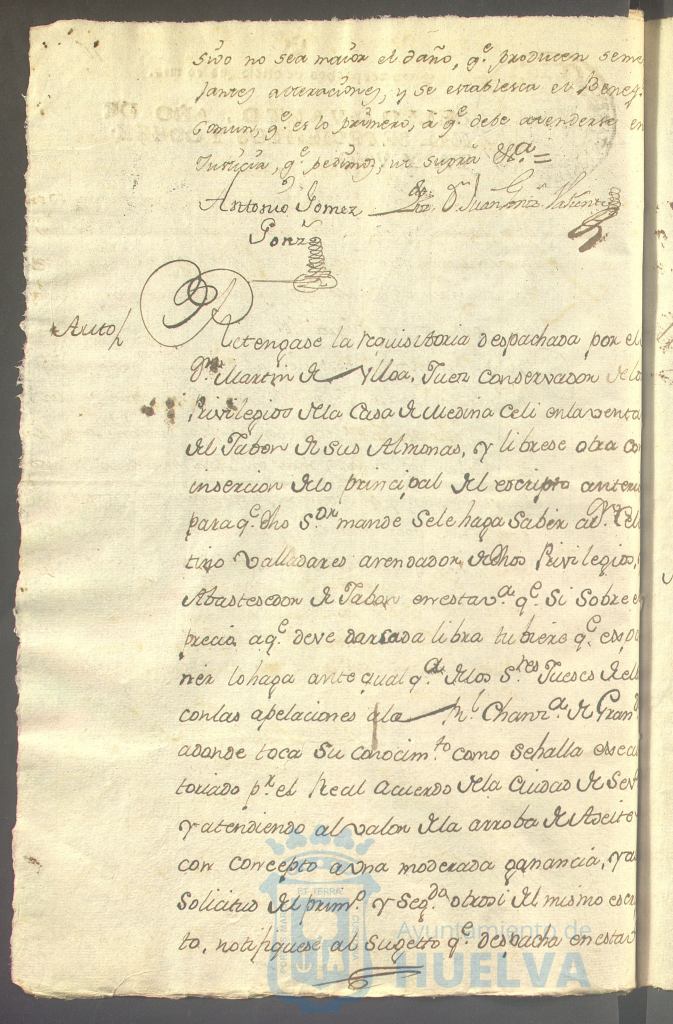 sivo no sea maior el daño, q.e producen seme
jantes alteraciones, y se establesca el Benefi
comun, q.e es lo primero, à q.e debe atenderse en
Justicia, q.e pedimos, ut supra &.a =
Antonio Gomez Juan Valiente
Gonz
Auto
Retengase la requisitoria despachada por el
D.n Martin de Ylloa, Juez conservador de los
Privilegios de la Casa de Medina Celi en la venta
del Jabon de sus Almonas, y librese otra co
insercion de lo principal del escripto anteri
para q.e dho S.or mande se le haga saber a D.n Cele
tino Valladares arrendador de dhos Privilegios,
Abastesedor de Jabon en esta v.a q.e si sobre el
precio a q.e deve dar cada libra tubiere q.e espo
ner lo haga ante qualq.a de los S.res Jueses de ell
con las apelaciones a la R.l Chanz.a de Gran.d
adonde toca su conocim.to como se halla essecu
toriado p.r el Real acuerdo de la Ciudad de Sev.a
y atendiendo al valor de la arroba de Aseite
con concepto a una moderada ganancia, y a
solicitud del prim.o y seg.do otrosi del mismo escri
to, notifiquese al sugetto q.e despacha en esta v
Ayuntamiento de
HUELVA